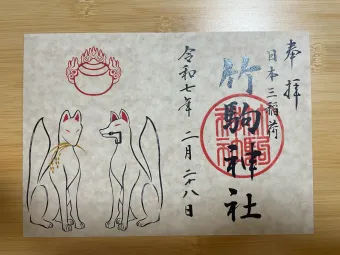 奉拝
日本三稲荷
竹駒神社
令和七年 二月二十八日
竹駒神社